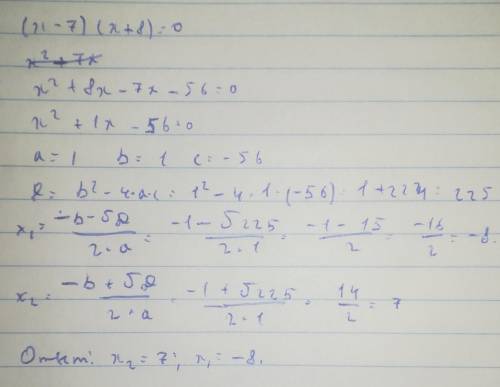 (x-7)(x+8)=0
x² + 7x
x² + 8x - 7x - 56 = 0
x² + 1x - 56 = 0
a = 1 b = 1 c = -56
D = b² - 4·a·c = 1² - 4·1·(-56) = 1 + 224 = 225
x₁ = (-b - √D)/(2·a) = (-1 - √225)/(2·1) = (-1 - 15)/2 = -16/2 = -8.
x₂ = (-b + √D)/(2·a) = (-1 + √225)/(2·1) = 14/2 = 7
Ответ: x₂ = 7; x₁ = -8.